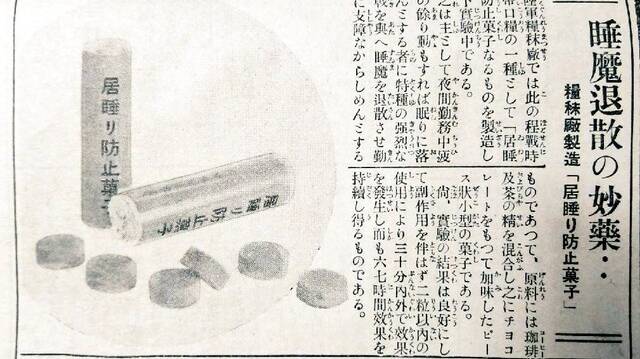 睡魔退散の妙薬‥
糧秣廠製造「居睡り防止菓子」
陸軍糧秣廠では此の程戰時
帶口糧の一種として「居睡
防止菓子なるものを製造し
下實驗中である。
之は主として夜間勤務中疲
の餘り動もすれば眠りに落
んとする者に特種の强烈な
戟を與へ睡魔を退散させ勤
に支障なからしめんとする
ものであつて、原料には珈琲
及茶の精を混合し之にチョコ
レートをもつて加味したビー
ス狀小型の菓子である。
尙、實驗の結果は良好にし
て副作用を伴はず二粒以内の
使用により三十分内外で效果
を發生し而も六七時間效果を
持續し得るものである。
居睡り防止菓子
居睡り防止菓子